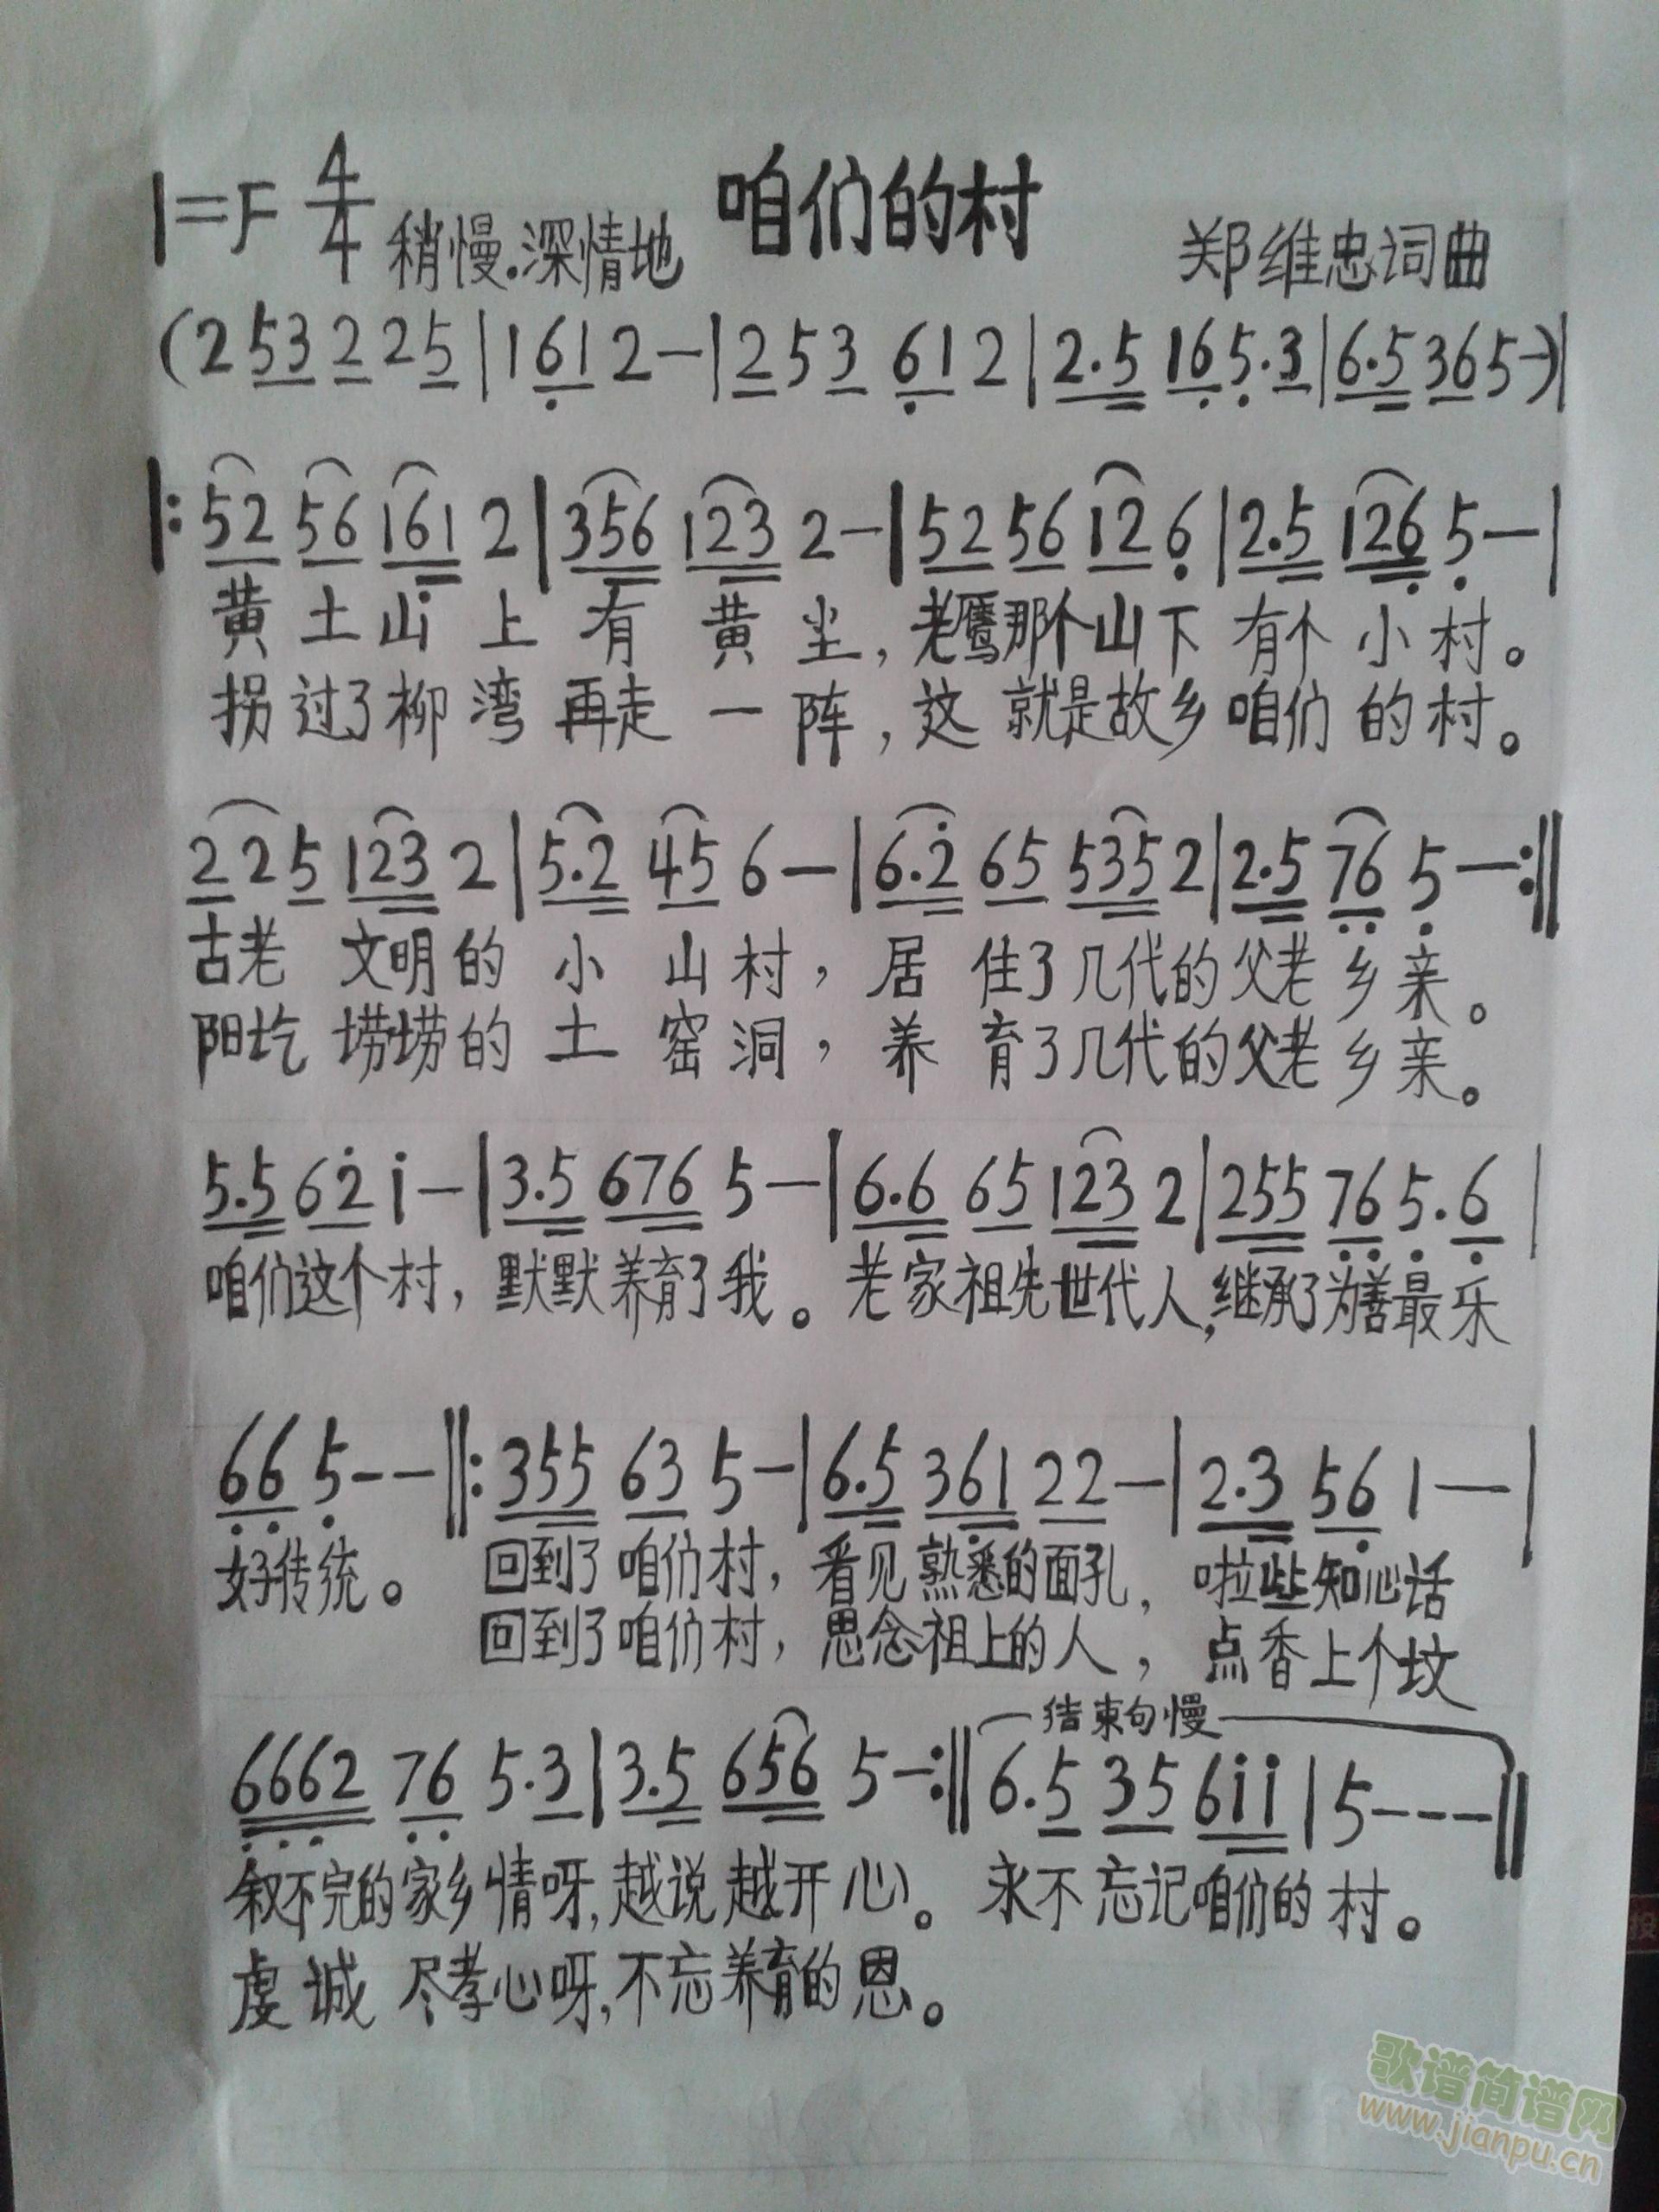 1=F 4/4 稍慢.深情地 咱们的村 郑维忠词曲
(2 53 2 25|1 61 2-|2 5 3 61 2|2.5 16 5.3|6.5 36 5-)|
|:52 56 161 2|356 123 2-|52 56 12 6|2.5 126 5-|
黄土山上有黄尘,老鹰那个山下有个小村。
拐过了柳湾再走一阵,这就是故乡咱们的村。
2 2 5 123 2|5.2 45 6-|6.2 65 535 2|2.5 76 5-:||
古老文明的小山村,居住了几代的父老乡亲。
阳圪塄塄的土窑洞,养育了几代的父老乡亲。
5.5 62 i-|3.5 676 5-|6.6 65 123 2|255 76 5.6|
咱们这个村,默默养育了我。老家祖先世代人,继承了为善最乐
66 5--||:355 63 5-|6.5 361 22-|2.3 56 1-|
好传统。回到了咱们村,看见熟悉的面孔,啦些知心话
回到了咱们村,思念祖上的人,点香上个坟
结束句慢
6662 76 5.3|3.5 656 5-:||6.5 35 6ii|5---||
叙不完的家乡情呀,越说越开心。永不忘记咱们的村。
虔诚尽孝心呀,不忘养育的恩。
歌谱简谱网
www.jianpu.cn